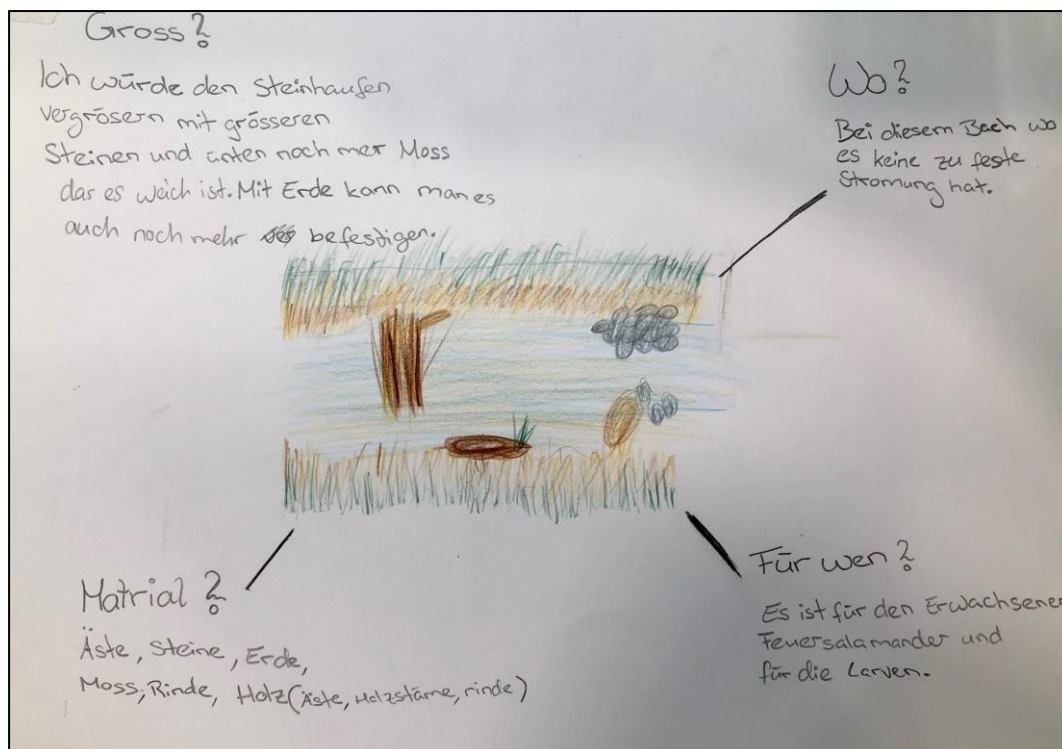 Gross?
Ich würde den Steinhaufen
vergrösern mit grösseren
Steinen und unten noch mer Moss
dar es weich ist. Mit Erde kann man es
auch noch mehr befestigen.
Wo?
Bei diesem Bach wo
es keine zu feste
Stromung hat.
Matrial?
Äste, Steine, Erde,
Moss, Rinde, Holz (Äste, Holzstäme, rinde)
Für wen?
Es ist für den Erwachsener
Feuersalamander und
für die Larven.